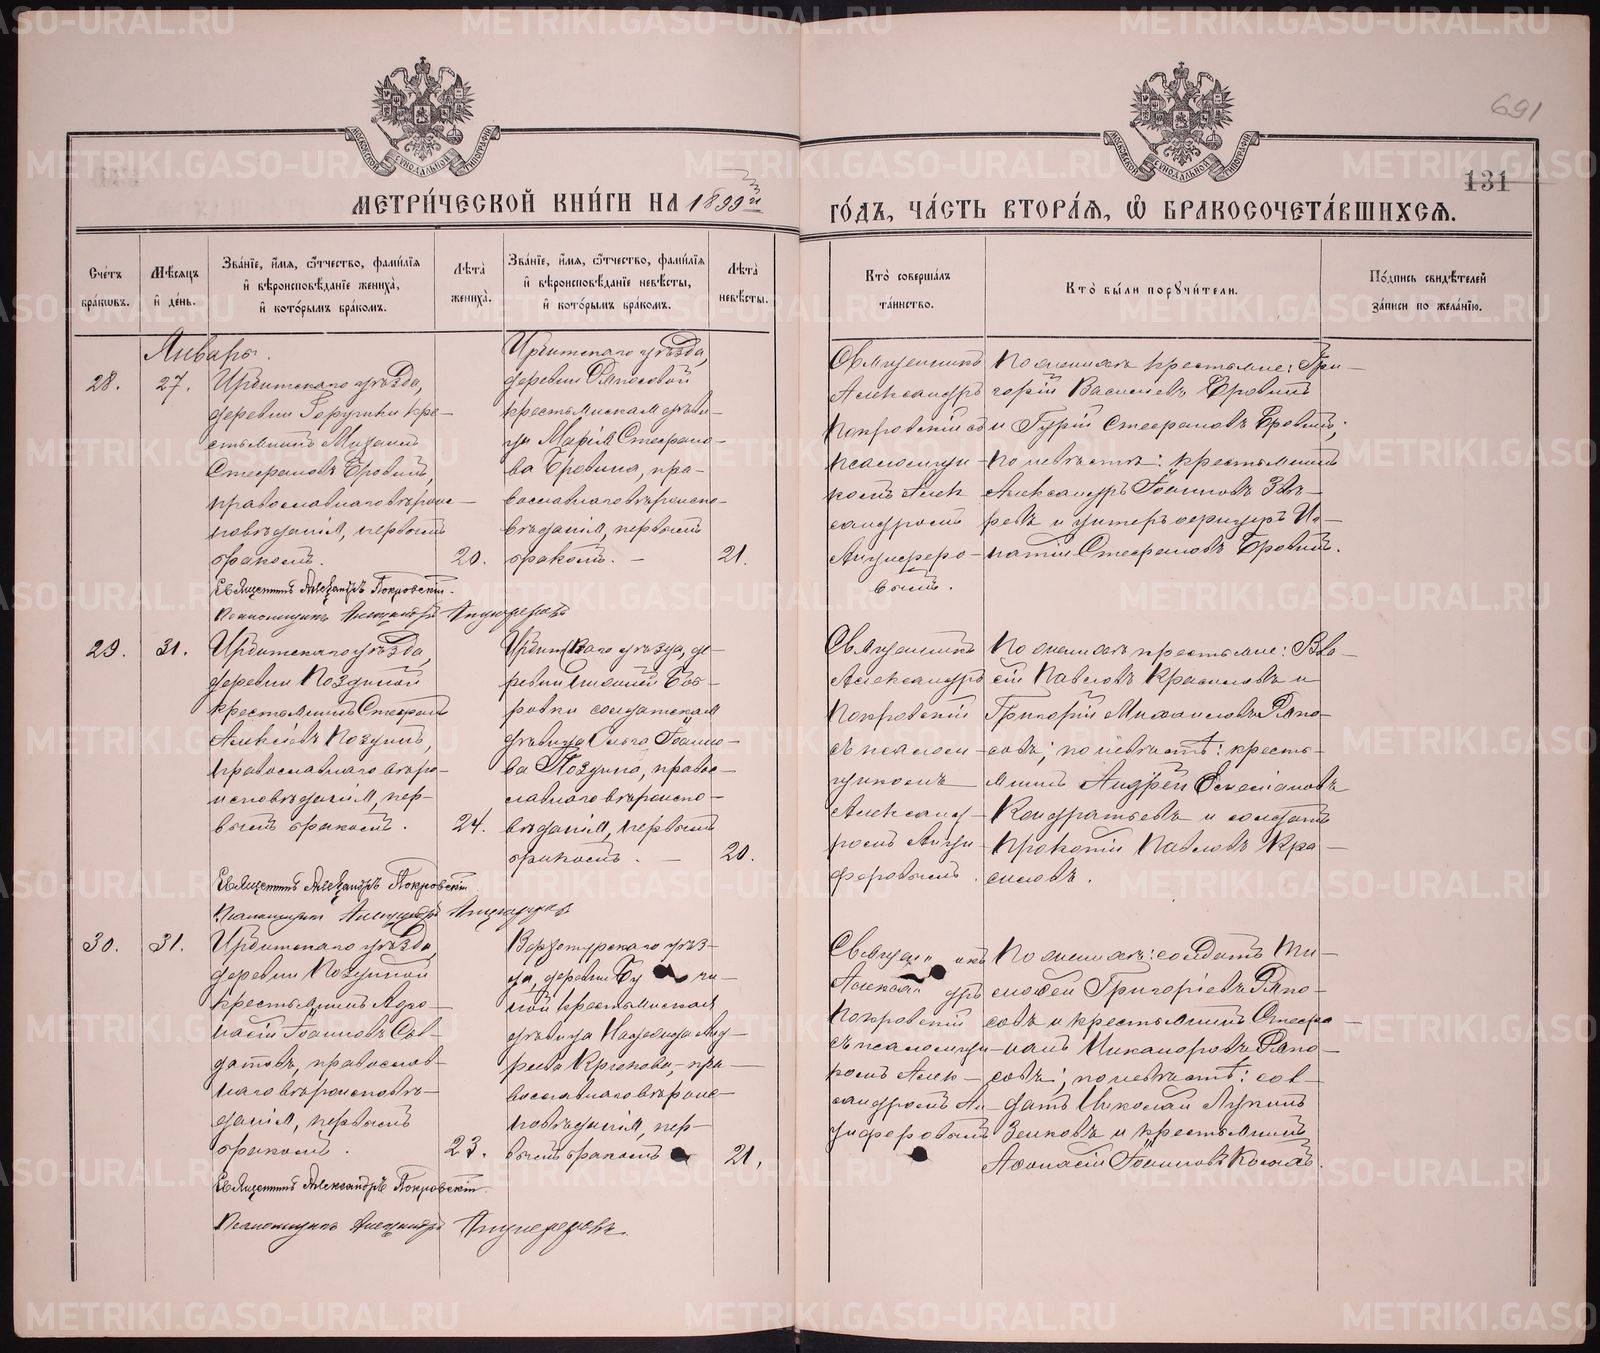 691
131
МЕТРИ́ЧЕСКОЙ КНИ́ГИ НА 1899й
ГО́ДЪ, ЧА́СТЬ ВТОРА́Я, Ѡ БРАКОСОЧЕТА́ВШИХСЯ.
Сче́тъ бра́кωвъ.
Мѣ́сяцъ и҆ де́нь.
Зва́нїе, и҆́мя, ѻ҆́тчество, фами́лїя
и҆ вѣроисповѣ́данїе жениха̀,
и҆ кото́рымъ бра́комъ.
Лѣта̀ жениха̀.
Зва́нїе, и҆́мя, ѻ҆́тчество, фами́лїя
и҆ вѣроисповѣ́данїе невѣ́сты,
и҆ кото́рымъ бра́комъ.
Лѣта̀ невѣ́сты.
Кто̀ соверша́лъ
та́инство.
Кто̀ бы́ли порꙋчи́тели.
По́дпись свидѣ́телей
за́писи по жела́нїю.
Январь.
28.
27.
Ирбитскаго уѣзда,
деревни
кре-
стьянинъ
Стефановъ Бровинъ,
православнаго вѣроис-
повѣданія, первымъ
бракомъ.
20.
Ирбитскаго уѣзда,
деревни Ряпосовой
крестьянская дѣви-
ца Марія Стефано-
ва Бровина, пра-
вославнаго вѣроиспо-
вѣданія, первымъ
бракомъ. —
21.
Священникъ
Александръ
Покровскій съ
псаломщи-
комъ Алек
сандромъ
Анциферо-
вымъ.
По женихѣ крестьяне: Гри-
горій Васильевъ Бровинъ
и Гурій Стефановъ Бровинъ;
по невѣстѣ: крестьянинъ
Александръ Іоанновъ Звѣ-
ревъ и унтеръ офицеръ Иг-
натій Стефановъ Бровинъ.
Священникъ Александръ Покровскій.
Псаломщикъ Александръ Анциферовъ
29.
31.
Ирбитскаго уѣзда,
деревни Поздиной
крестьянинъ Стефанъ
Алексѣевъ Поздинъ,
православнаго вѣро-
исповѣданія, пер-
вымъ бракомъ.
24.
Ирбитскаго уѣзда, де-
ревни
Боб-
ровки солдатская
дѣвица Ольга Іоанно-
ва Поздина, право-
славнаго вѣроиспо-
вѣданія, первымъ
бракомъ. —
20.
Священникъ
Александръ
Покровскій
съ псалом-
щикомъ
Александ-
ромъ Анци
феровымъ.
По женихѣ крестьяне:
Павловъ Красиловъ и
Григорій Михаиловъ Ряпо-
совъ; по невѣстѣ: кресть-
янинъ Андрей
Кондратьевъ и солдатъ
Прокопій Павловъ Кра-
силовъ.
Священникъ Александръ Покровскій
Псаломщикъ Александръ Анциферовъ
30.
31.
Ирбитскаго уѣзда,
деревни Поздиной
крестьянинъ Афо-
насій Іоанновъ Сол-
датовъ, православ-
наго вѣроисповѣ-
данія, первымъ
бракомъ.
23.
Верхотурскаго уѣз-
да, деревни
ной крестьянская
дѣвица Надежда Анд-
реева Крюкова, пра-
вославнаго вѣроис-
повѣданія, пер-
вымъ бракомъ
21.
Священникъ
Александръ
Покровскій
съ псаломщи-
комъ Алек-
сандромъ Ан-
циферовымъ
По женихѣ: солдатъ Ти-
мофей Григоріевъ Ряпо-
совъ и крестьянинъ Стефа-
нъ Никаноровъ Ряпо-
совъ; по невѣстѣ: сол-
датъ Николай Лукинъ
Зенковъ и крестьянинъ
Афонасій Іоанновъ
Священникъ Александръ Покровскій.
Псаломщикъ Александръ Анциферовъ.
METRIKI.GASO-URAL.RU